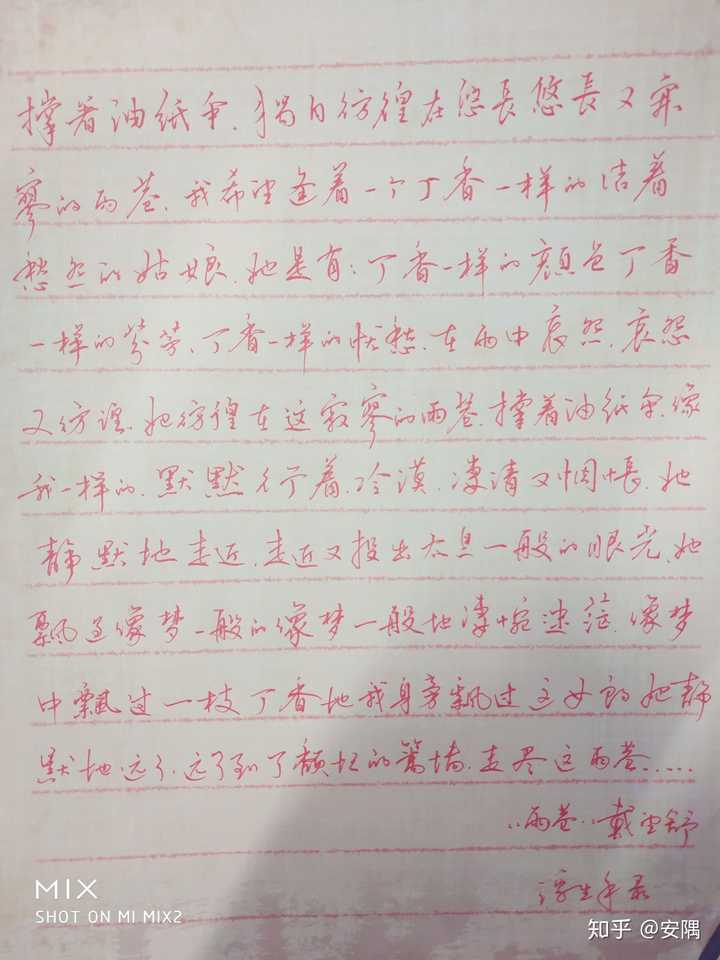 撑着油纸伞、独自彷徨在悠長悠長又寂
寥的雨巷、我希望逢着一个丁香一样的结着
愁怨的姑娘、她是有:丁香一样的顔色丁香
一样的芬芳、丁香一样的忧愁、在雨中哀怨、哀怨
又彷徨、她彷徨在这寂寥的雨巷、撑着油纸伞、像
我一样的、默默彳亍着、冷漠、凄清又惆悵、她
静默地走近、走近又投出太息一般的眼光、她
飘过像梦一般的像梦一般地凄惋迷茫、像梦
中飘过一枝丁香地我身旁飘过这女郎她静
默地远了、远了到了颓圮的篱墙、走尽这雨巷……
雨巷、戴望舒
浮生手录
MIX
SHOT ON MI MIX2
知乎 @安隅